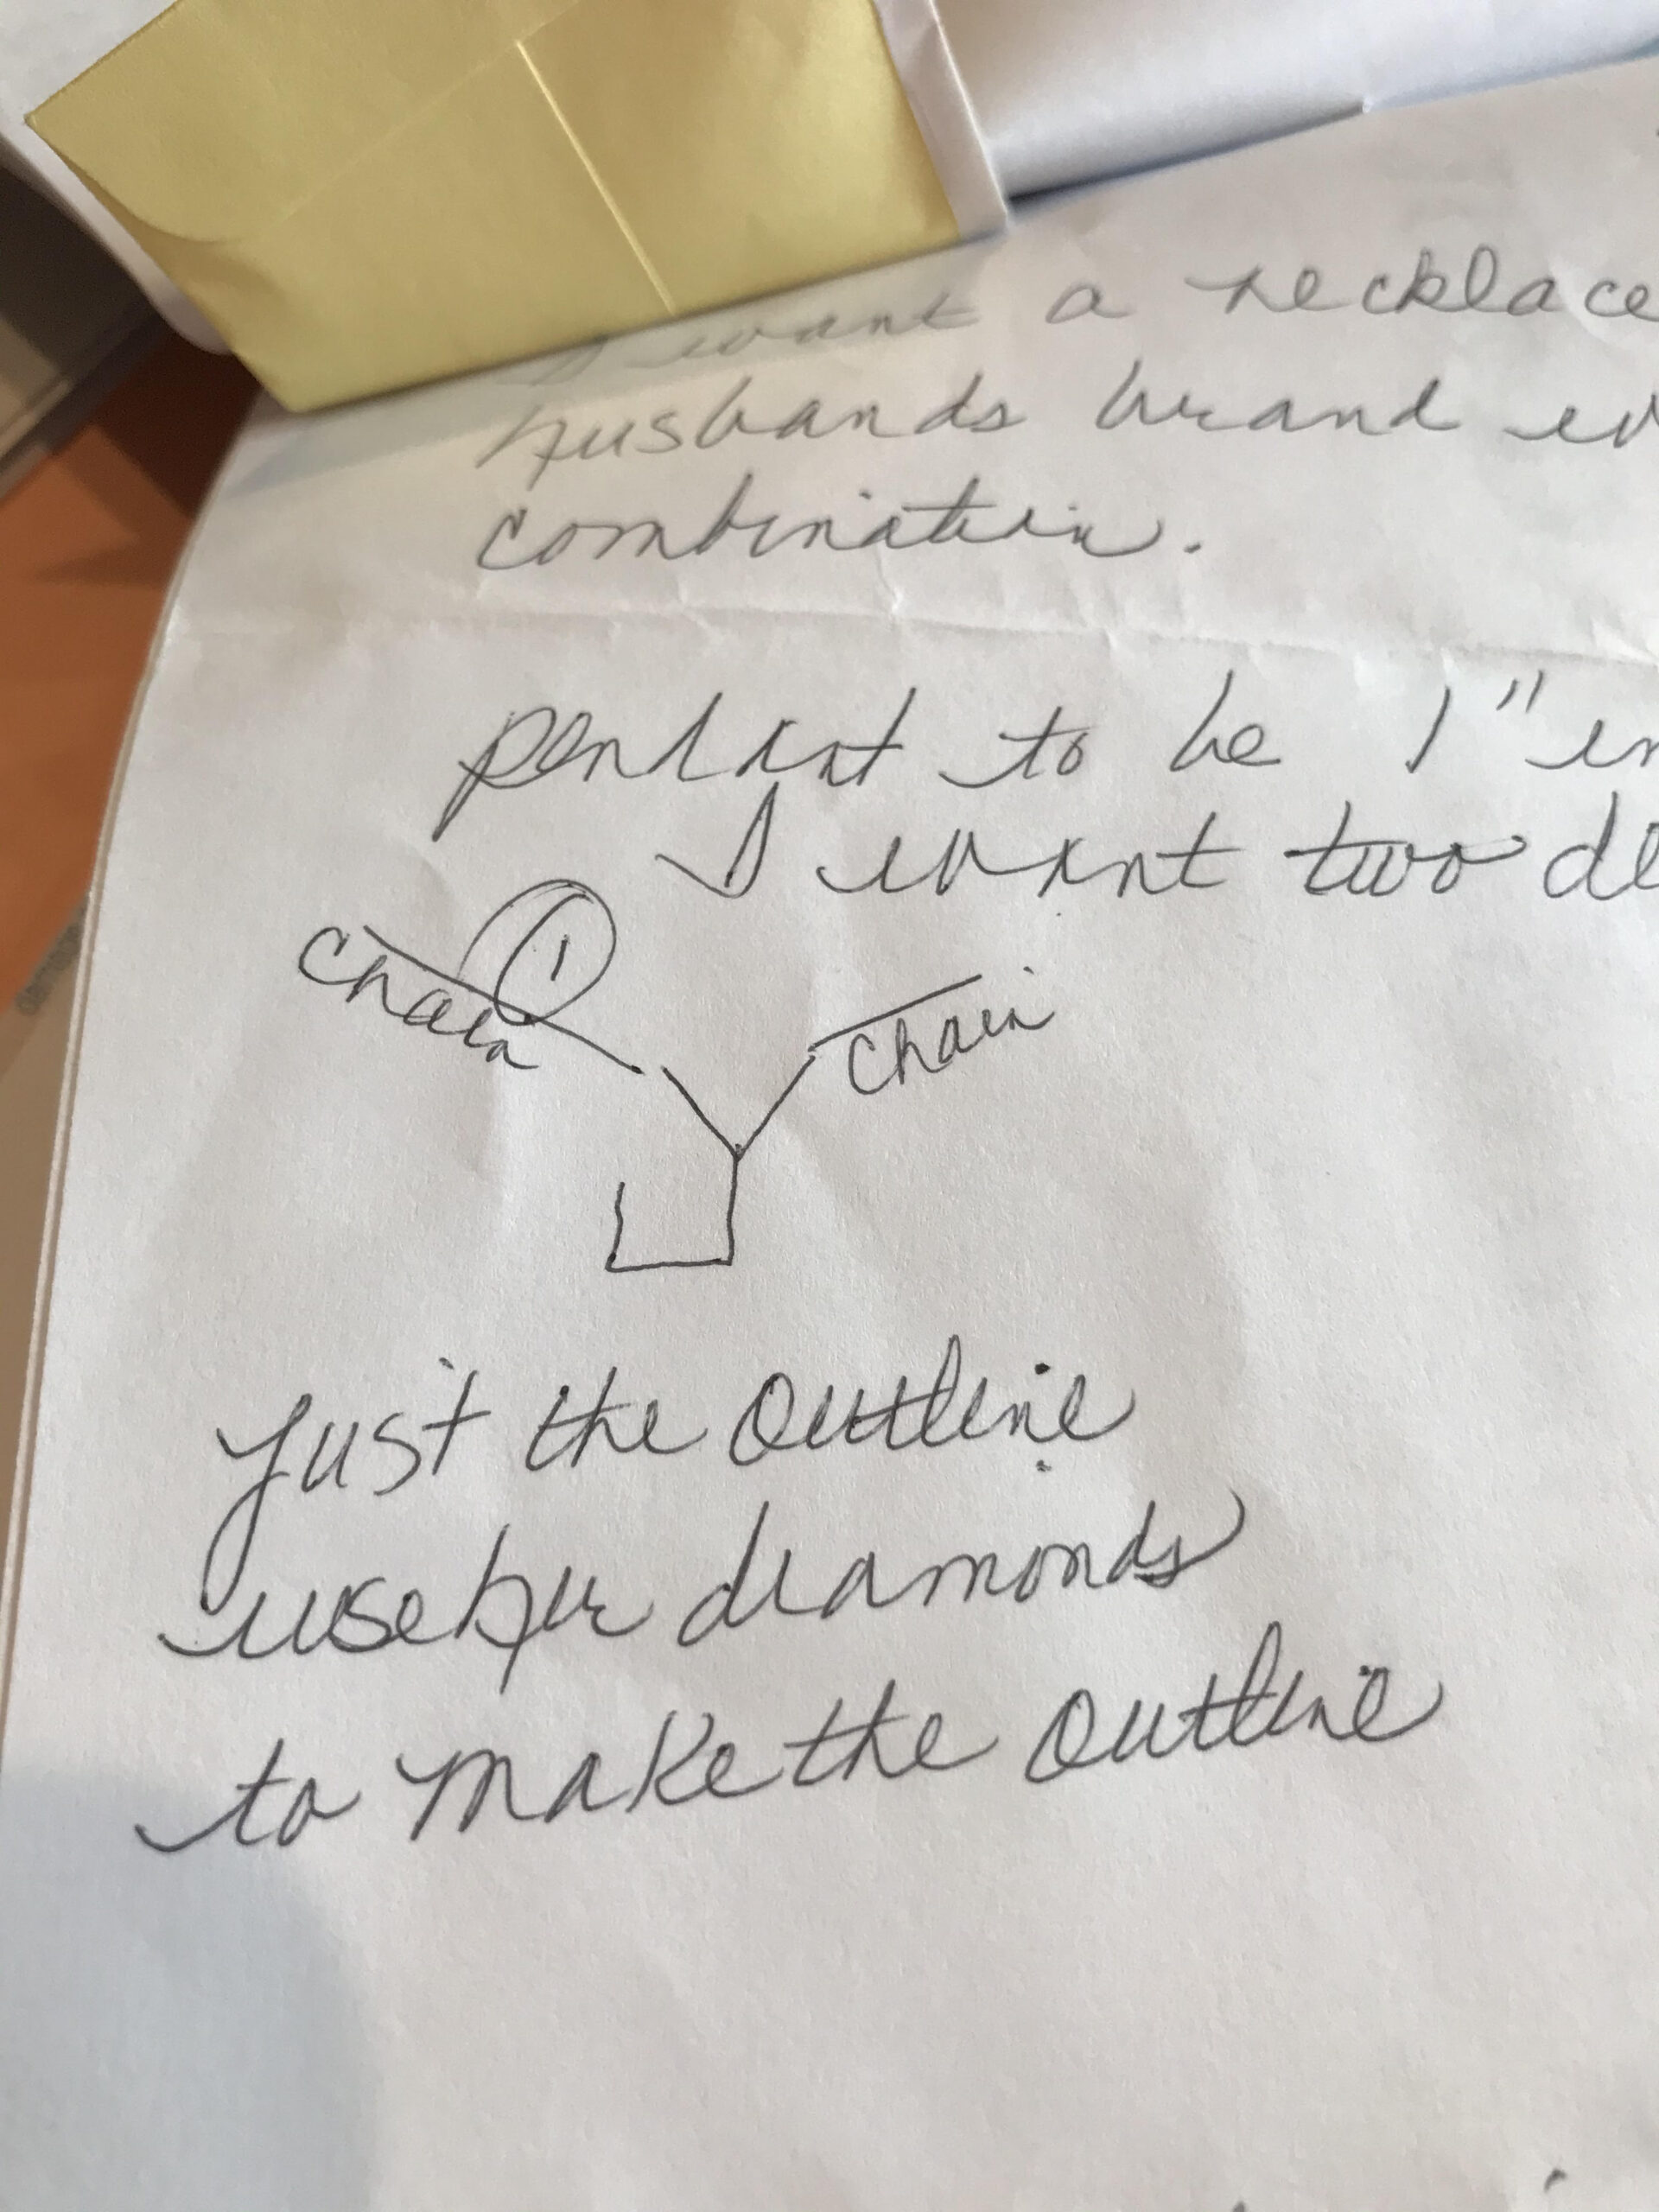 I want a necklace
husbands brand
combination.
pendant to be 1" in
I want two de
1
chain
chain
Just the outline
use her diamonds
to make the outline